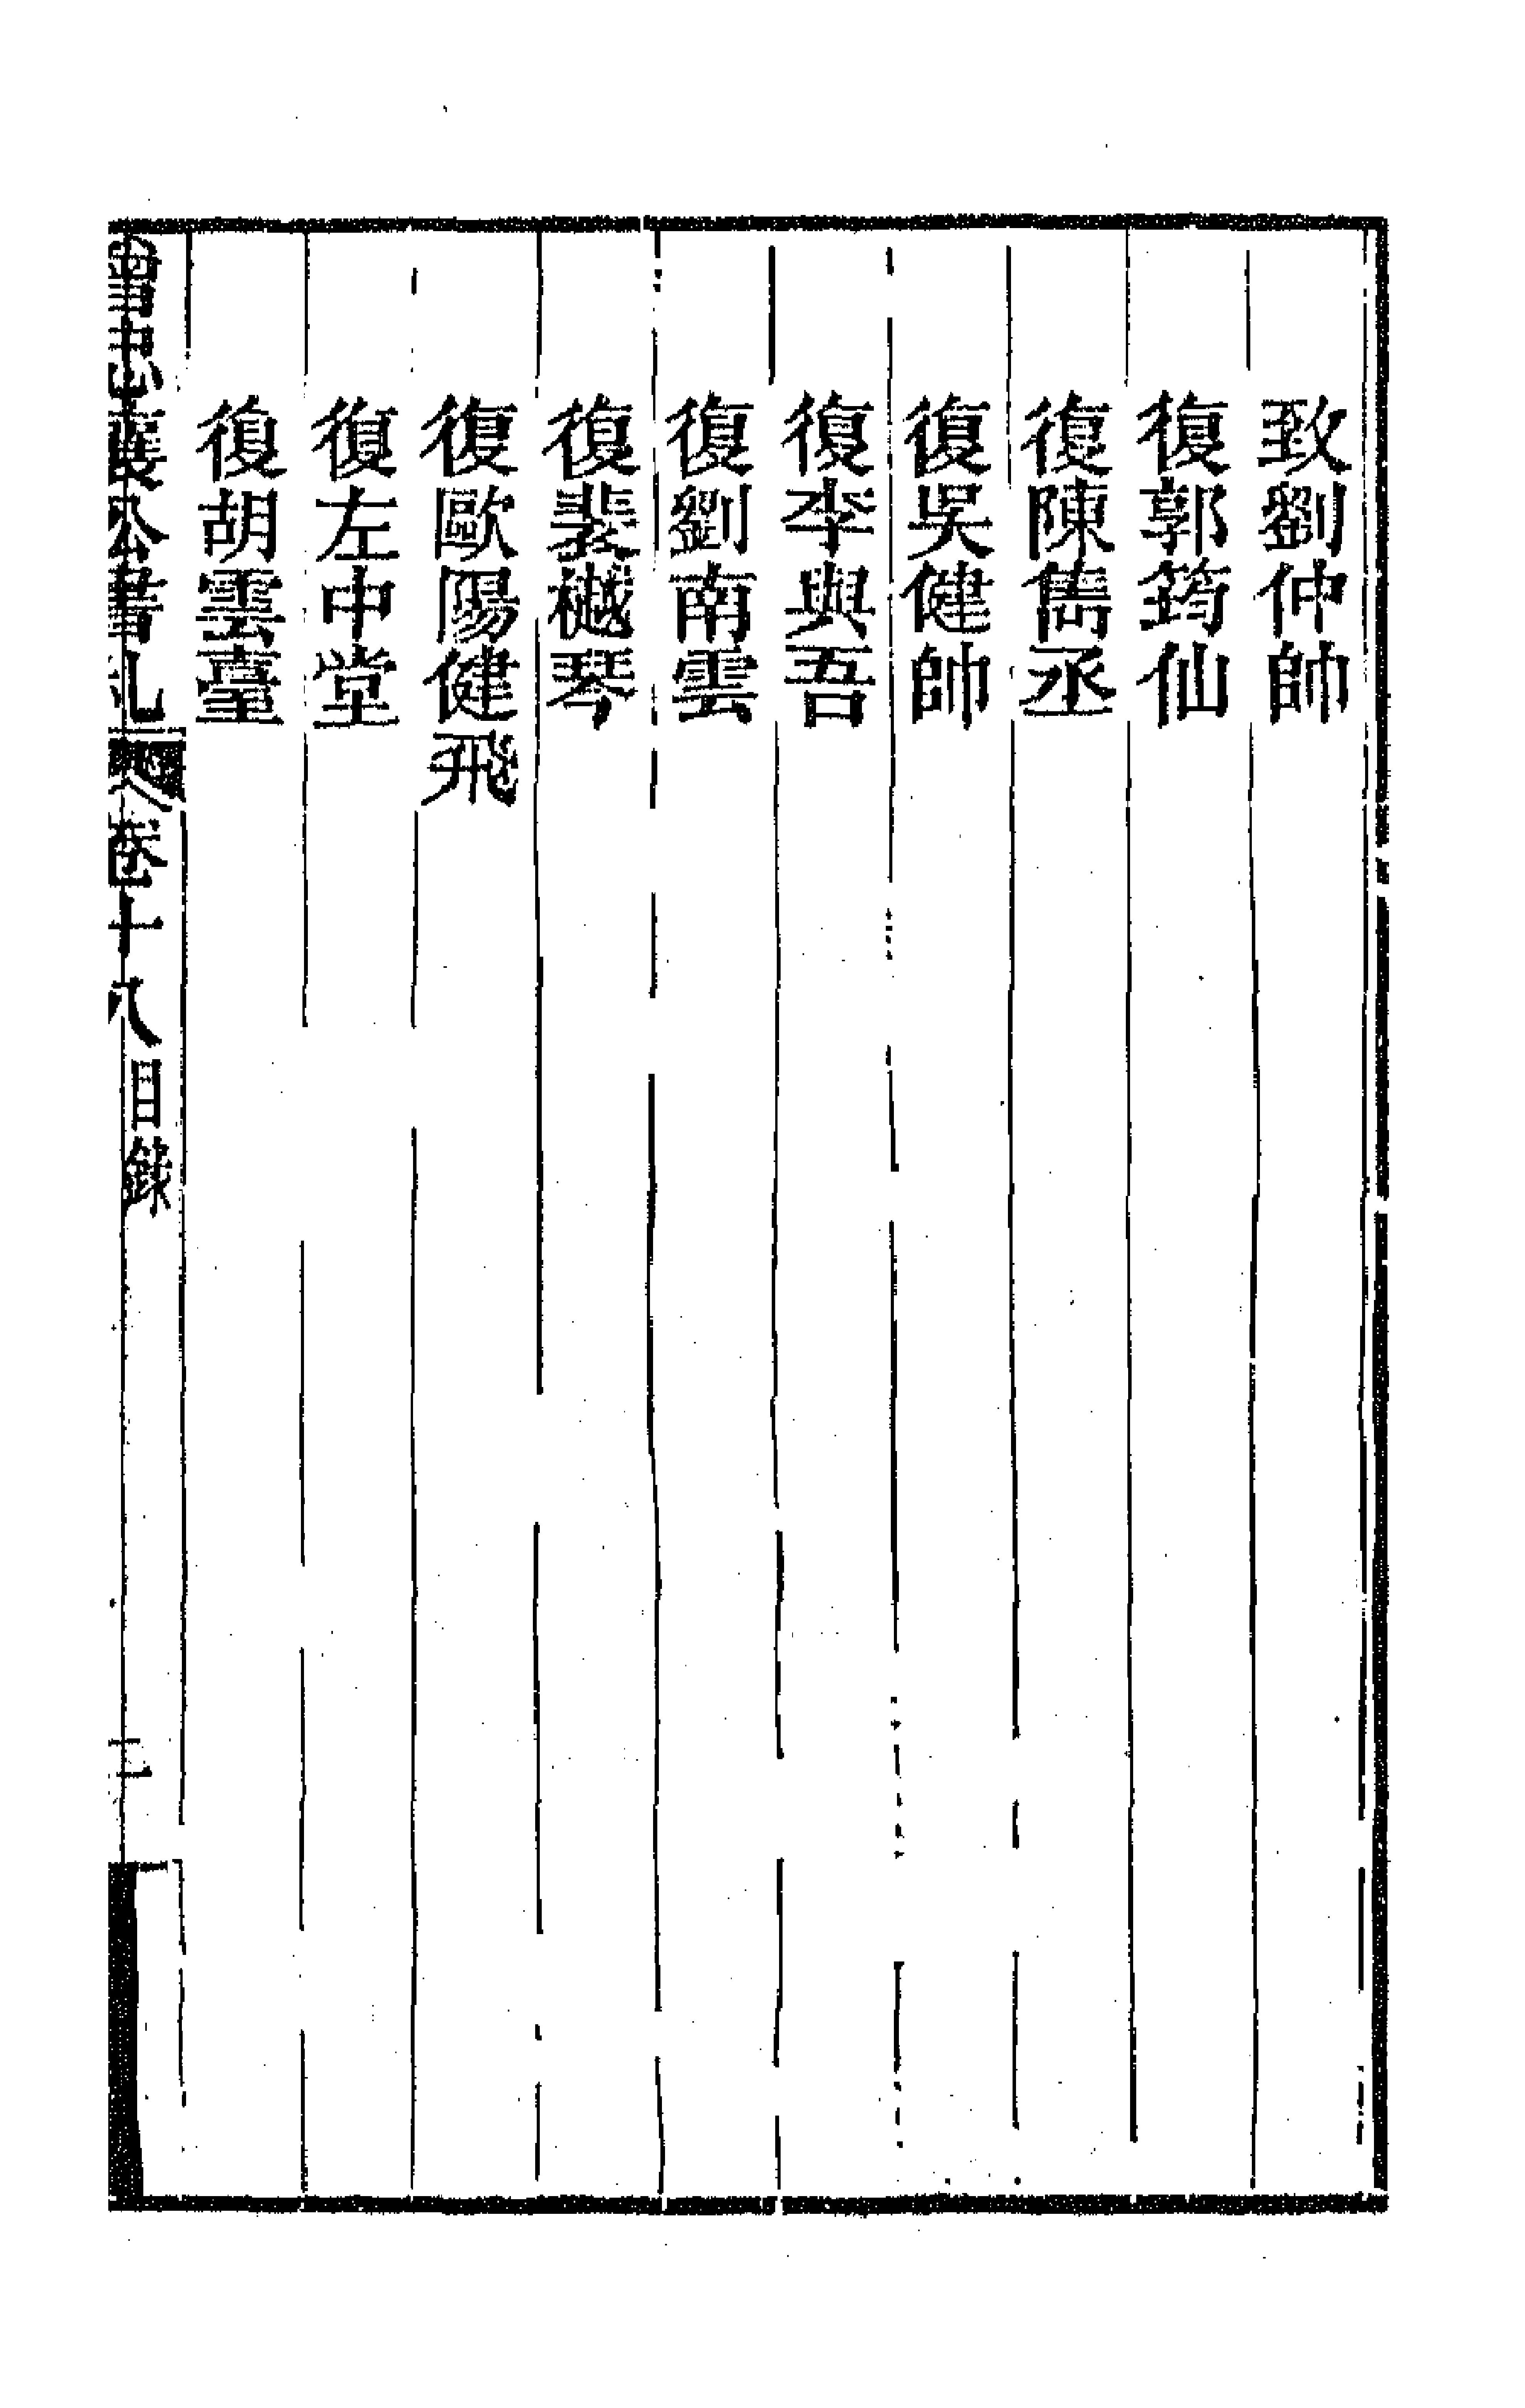 致劉仲帥
復郭筠仙
復陳雋丞
復吳健帥
復李與吾
復劉南雲
復裴樾琴
復歐陽健飛
復左中堂
復胡雲臺
曾忠襄公書札 卷十八目錄 二